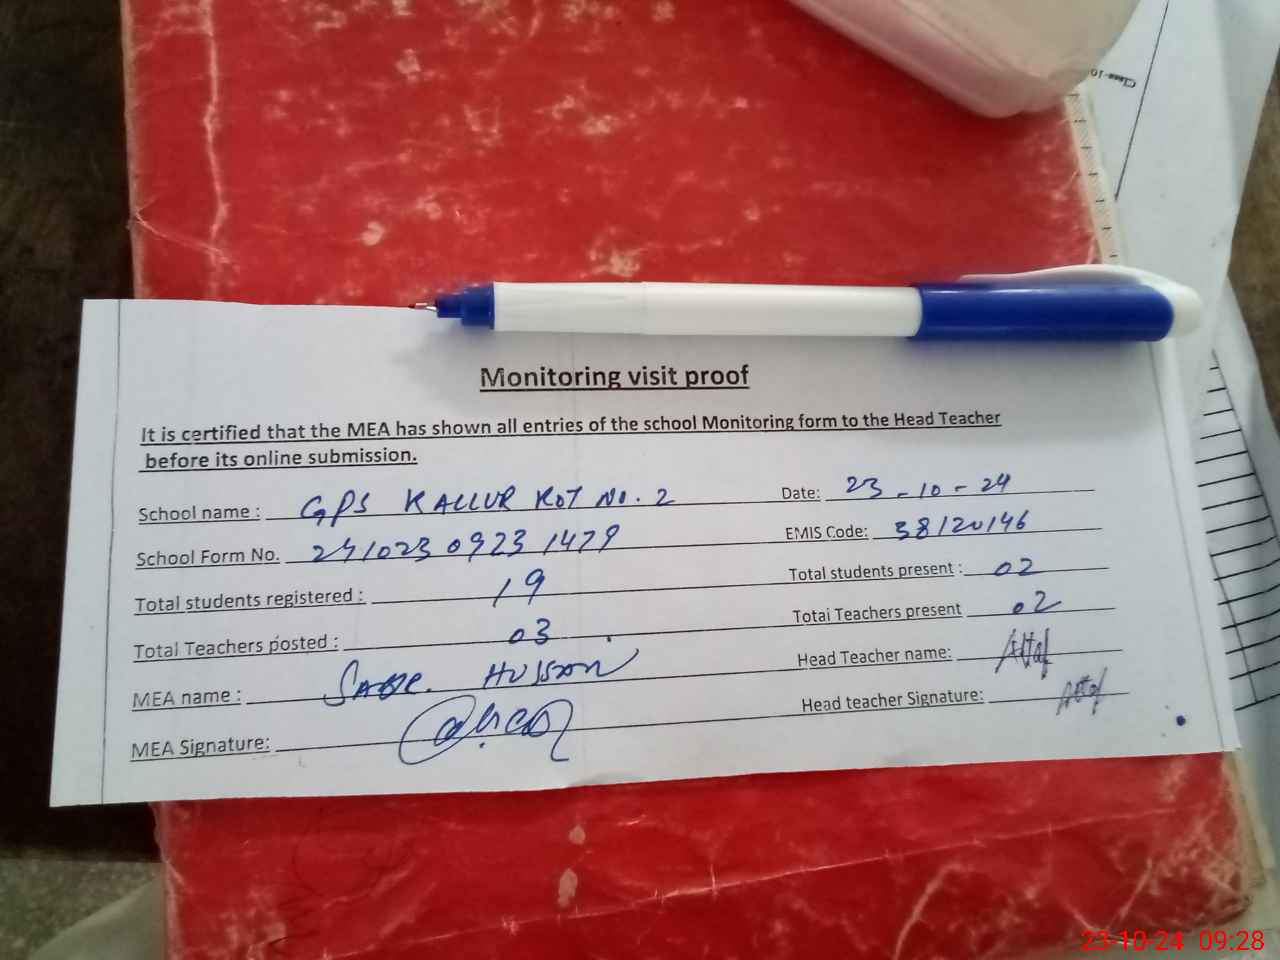 Class-10
Monitoring visit proof
It is certified that the MEA has shown all entries of the school Monitoring form to the Head Teacher
before its online submission.
School name : GPS KALLUR KOT No. 2 Date: 23-10-24
School Form No. 241023 0923 1479 EMIS Code: 38120146
Total students registered : 19 Total students present : 02
Total Teachers posted : 03 Total Teachers present 02
MEA name : Hussain Head Teacher name: Altaf
MEA Signature: Head teacher Signature: Altaf
23-10-24 09:28